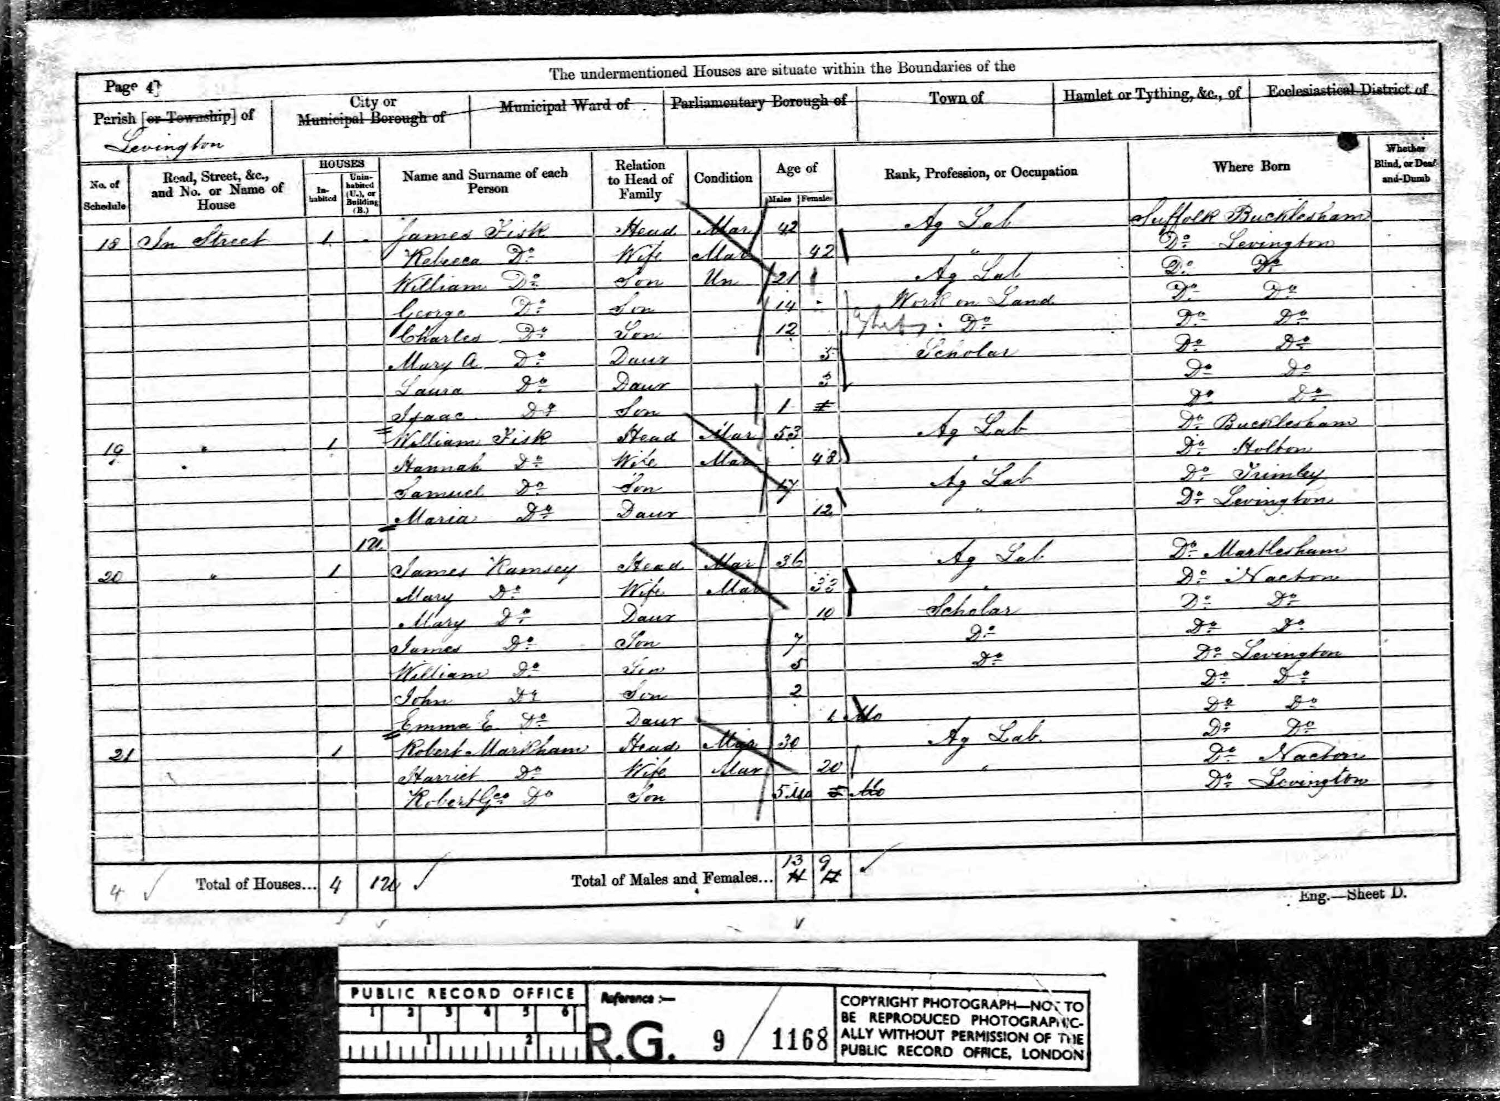 The undermentioned Houses are situate within the Boundaries of the
Page 4
Parish [or Township] of
City or Municipal Borough of
Municipal Ward of
Parliamentary Borough of
Town of
Hamlet or Tything, &c., of
Ecclesiastical District of
Levington
No. of Schedule
Road, Street, &c., and No. or Name of House
HOUSES
In-habited
Unin-habited (U.), or Building (B.)
Name and Surname of each Person
Relation to Head of Family
Condition
Age of
Males
Females
Rank, Profession, or Occupation
Where Born
Whether Blind, or Deaf-and-Dumb
18 In Street 1 James Fisk Head Mar 42 Ag Lab Suffolk Bucklesham
Rebecca Do Wife Mar 42 " Do Levington
William Do Son Un 21 Ag Lab Do Do
George Do Son 14 Work on Land Do Do
Charles Do Son 12 Do Do Do
Mary A Do Daur 5 Scholar Do Do
Laura Do Daur 3 Do Do
Isaac Do Son 1 Do Do
19 " 1 William Fisk Head Mar 53 Ag Lab Do Bucklesham
Hannah Do Wife Mar 48 " Do Holton
Samuel Do Son 17 Ag Lab Do Trimley
Maria Do Daur 12 " Do Levington
1U
20 " 1 James Ramsey Head Mar 36 Ag Lab Do Martlesham
Mary Do Wife Mar 33 " Do Nacton
Mary Do Daur 10 Scholar Do Do
James Do Son 7 Do Do Do
William Do Son 5 Do Do Levington
John Do Son 2 Do Do
Emma E Do Daur 1 Mo Do Do
21 1 Robert Markham Head Mar 30 Ag Lab. Do Do
Harriet Do Wife Mar 20 " Do Nacton
Robert Geo Do Son 5 Mo Mo Do Levington
4 Total of Houses... 4 1U Total of Males and Females... 13 9
Eng.—Sheet D.
PUBLIC RECORD OFFICE
1 2 3 4 5 6
1 2
Reference :—
R.G. 9 / 1168
COPYRIGHT PHOTOGRAPH—NOT TO
BE REPRODUCED PHOTOGRAPHIC-
ALLY WITHOUT PERMISSION OF THE
PUBLIC RECORD OFFICE, LONDON